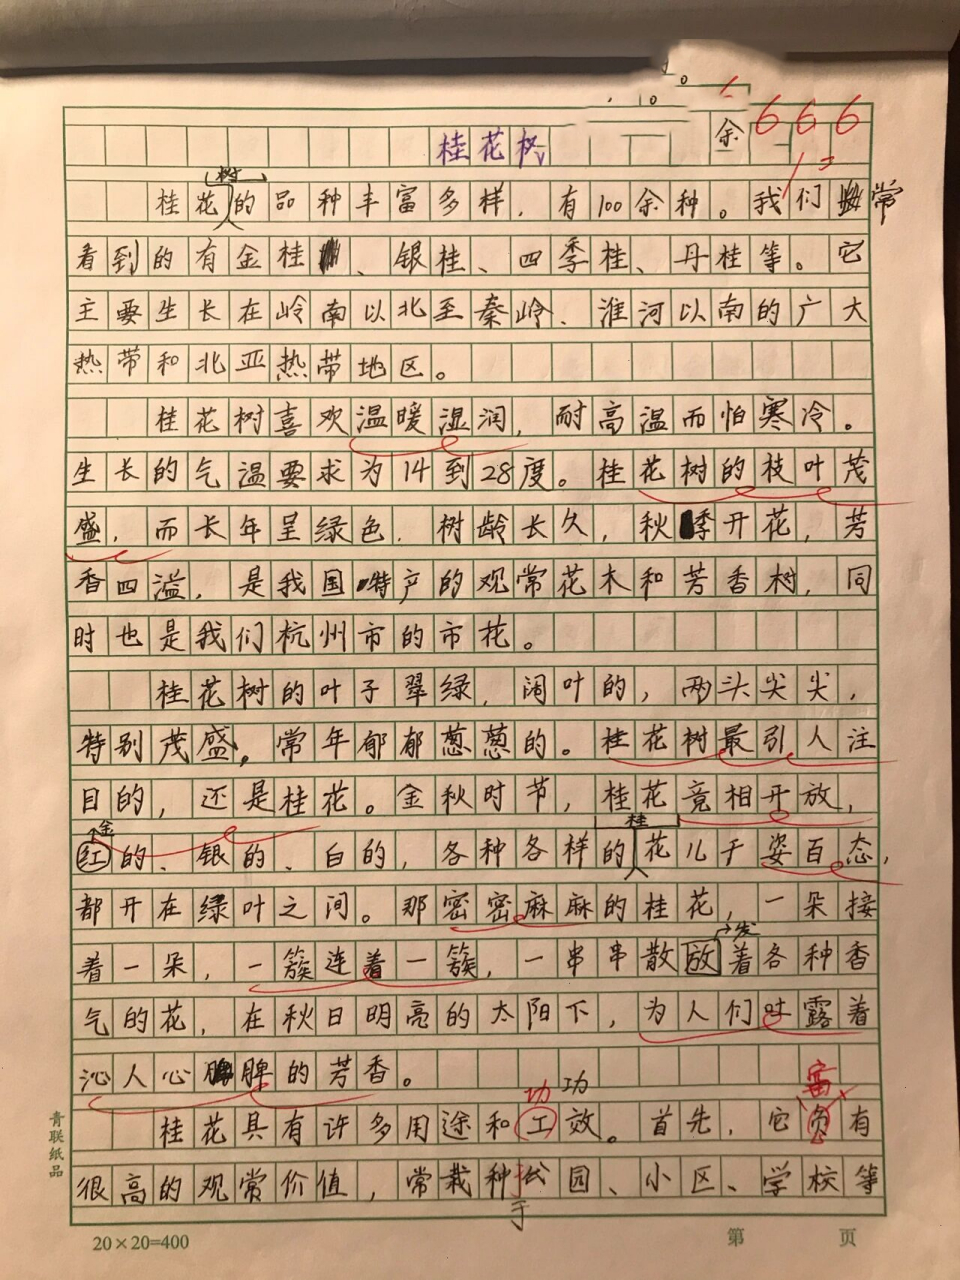 10
余 666
桂花树
树
桂花的品种丰富多样，有100余种。我们常
看到的有金桂、银桂、四季桂、丹桂等。它
主要生长在岭南以北至秦岭、淮河以南的广大
热带和北亚热带地区。
桂花树喜欢温暖湿润，耐高温而怕寒冷。
生长的气温要求为14到28度。桂花树的枝叶茂
盛，而长年呈绿色，树龄长久，秋季开花，芳
香四溢，是我国特产的观常花木和芳香树，同
时也是我们杭州市的市花。
桂花树的叶子翠绿，阔叶的，两头尖尖，
特别茂盛，常年郁郁葱葱的。桂花树最引人注
目的，还是桂花。金秋时节，桂花竞相开放，
金 桂
红的、银的、白的，各种各样的花儿千姿百态，
都开在绿叶之间。那密密麻麻的桂花，一朵接
发
着一朵，一簇连着一簇，一串串散放着各种香
气的花，在秋日明亮的太阳下，为人们吐露着
沁人心脾的芳香。
功 功 富
桂花具有许多用途和工效。首先，它负有
很高的观赏价值，常栽种公园、小区、学校等
于
青联纸品
20×20=400 第 页